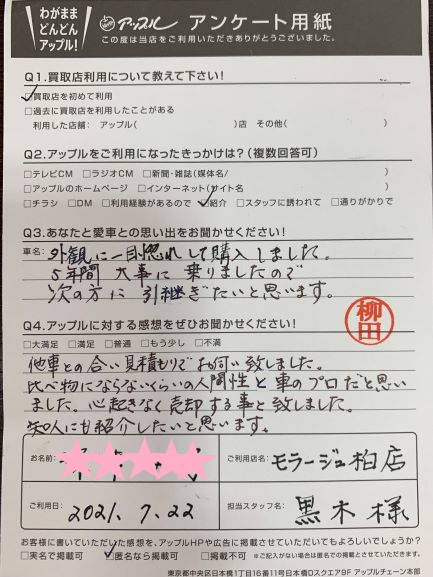 わがまま
どんどん
アップル!
アップル アンケート用紙
この度は当店をご利用いただきありがとうございました。
Q1.買取店利用について教えて下さい!
☑買取店を初めて利用
□過去に買取店を利用したことがある
利用した店舗: アップル( )店 その他( )
Q2.アップルをご利用になったきっかけは?(複数回答可)
□テレビCM □ラジオCM □新聞・雑誌(媒体名/ )
□アップルのホームページ □インターネット(サイト名 )
□チラシ □DM □利用経験があるので ☑紹介 □スタッフに誘われて □通りがかりで
Q3.あなたと愛車との思い出をお聞かせください!
車名:
外観に一目惚れして購入しました。
5年間 大事に 乗りましたので
次の方に 引継ぎたいと思います。
柳田
Q4.アップルに対する感想をぜひお聞かせください!
□大満足 □満足 □普通 □もう少し □不満
他車との合い見積もりでお伺い致しました。
比べ物にならないくらいの人間性と車のプロだと思い
ました。心起きなく売却する事と致しました。
知人にも紹介したいと思います。
お名前:
ご利用店名: モラージュ柏店
ご利用日: 2021. 7. 22
担当スタッフ名: 黒木 様
お客様に書いていただいた感想を、アップルHPや広告に掲載させていただいてもよろしいでしょうか?
□実名で掲載可 ☑匿名なら掲載可 □掲載不可 ※ご記入がない場合は匿名での掲載とさせていただきます。
東京都中央区日本橋1丁目16番11号日本橋Dスクエア9F アップルチェーン本部